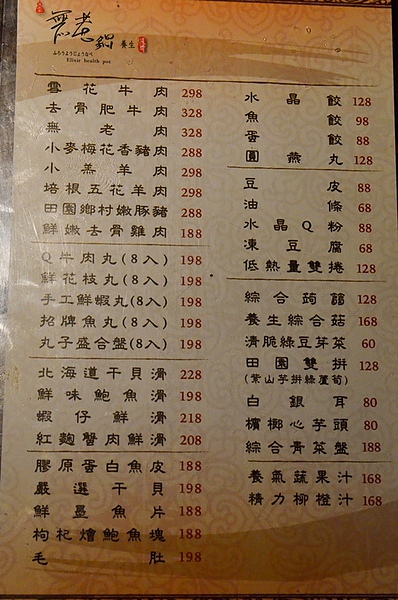 無老鍋 養生
ふろうようじょうなべ
Elixir health pot
雲花牛肉 298
去骨肥牛肉 328
無老肉 328
小麥梅花香豬肉 288
小羔羊肉 298
培根五花羊肉 298
田園鄉村嫩豚豬 288
鮮嫩去骨雞肉 188
Q牛肉丸(8入) 198
鮮花枝丸(8入) 198
手工鮮蝦丸(8入) 198
招牌魚丸(8入) 198
丸子盛合盤(8入) 198
北海道干貝滑 228
鮮味鮑魚滑 198
蝦仔鮮滑 218
紅麴蟹肉鮮滑 208
膠原蛋白魚皮 188
嚴選干貝 198
鮮墨魚片 188
枸杞燴鮑魚塊 188
毛肚 198
水晶餃 128
魚餃 98
蛋餃 88
圓燕丸 128
豆皮 88
油條 68
水晶Q粉 88
凍豆腐 68
低熱量雙捲 128
綜合蒟蒻 128
養生綜合菇 168
清脆綠豆芽菜 60
田園雙拼 128
(紫山芋拼綠蘆筍)
白銀耳 80
檳榔心芋頭 80
綜合青菜盤 188
養氣蔬果汁 168
精力柳橙汁 168